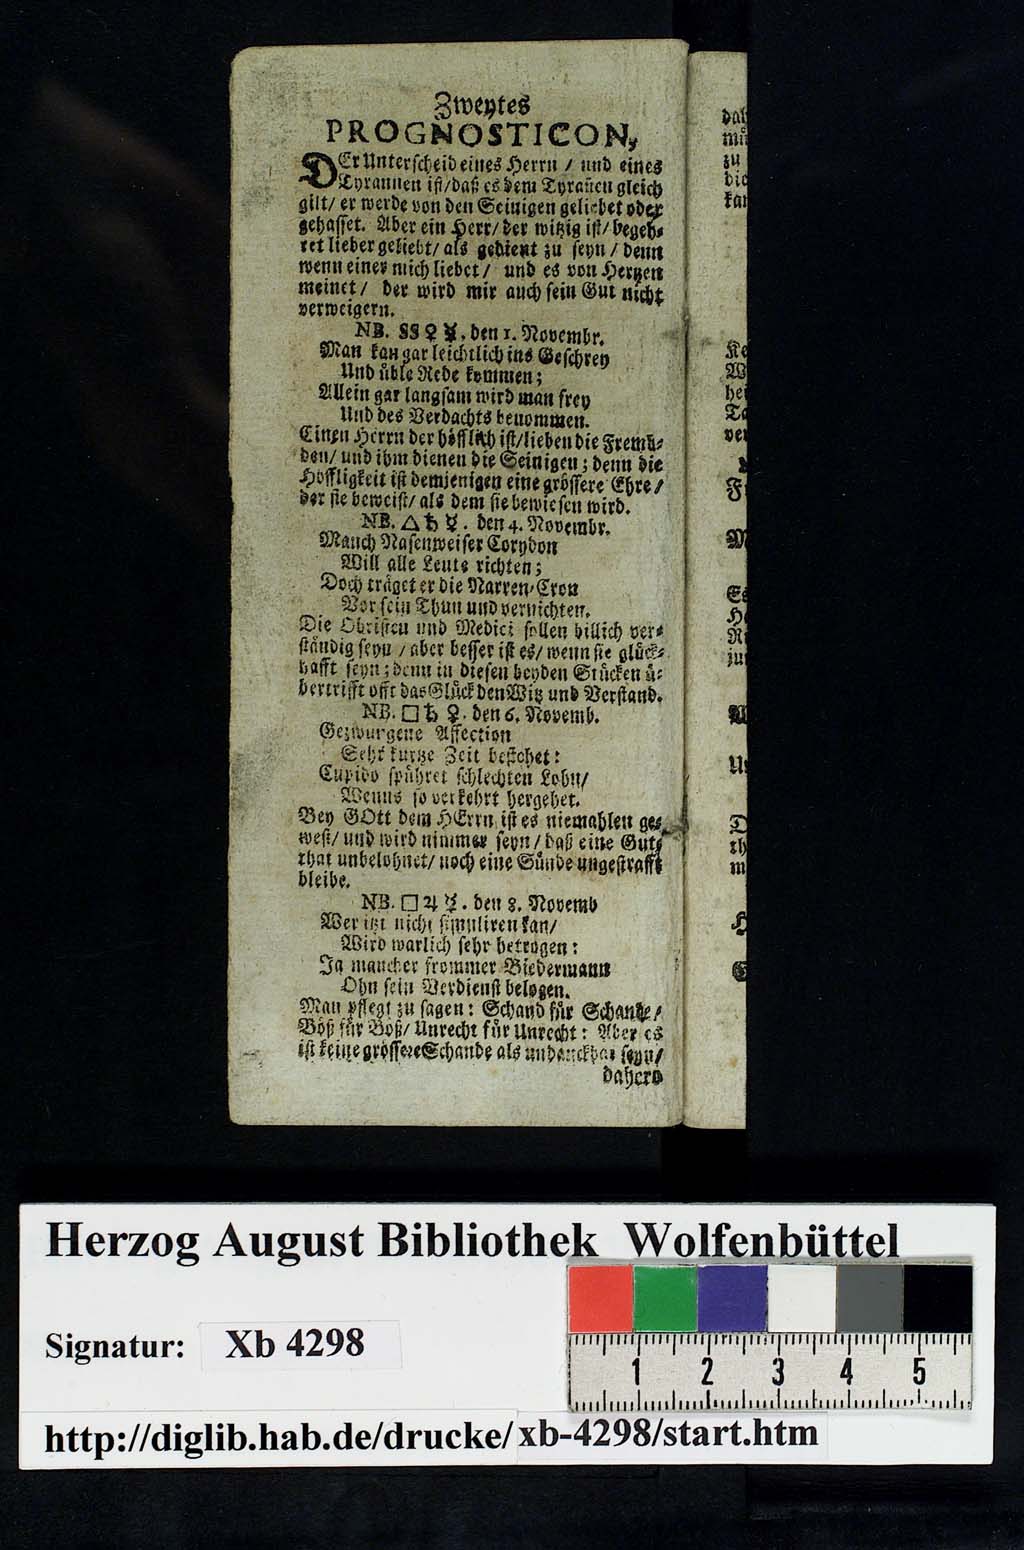 Zweytes
PROGNOSTICON,
DEr Unterscheid eines Herrn / und eines
Tyrannen ist/daß es dem Tyrañen gleich
gilt/ er werde von den Seinigen geliebet oder
gehasset. Aber ein Herr/ der witzig ist/ begeh-
ret lieber geliebt/ als gedient zu seyn / denn
wenn einer mich liebet / und es von Hertzen
meinet / der wird mir auch sein Gut nicht
verweigern.
NB. SS ♀ ☿. den 1. Novembr.
Man kan gar leichtlich ins Geschrey
Und üble Rede kommen;
Allein gar langsam wird man frey
Und des Verdachts benommen.
Einen Herrn der höfflich ist/lieben die Fremb-
den/ und ihm dienen die Seinigen; denn die
Höffligkeit ist demjenigen eine grössere Ehre/
der sie beweist/ als dem sie bewiesen wird.
NB. △ ♄ ☿. den 4. Novembr.
Manch Nasenweiser Corydon
Will alle Leute richten;
Doch träget er die Narren-Cron
Vor sein Thun und vernichten.
Die Obristen und Medici sollen billich ver-
ständig seyn / aber besser ist es/ wenn sie glück-
hafft seyn; denn in diesen beyden Stücken ü-
bertrifft offt das Glück den Witz und Verstand.
NB. □ ♄ ♀. den 6. Novemb.
Gezwungene Affection
Sehr kurtze Zeit bestehet:
Cupido spühret schlechten Lohn/
Wenns so verkehrt hergehet.
Bey GOtt dem HErrn ist es niemahlen ge-
west/ und wird nimmer seyn/ daß eine Gut-
that unbelohnet/ noch eine Sünde ungestrafft
bleibe.
NB. □ ♃ ☿. den 8. Novemb
Wer itzt nicht simuliren kan/
Wird warlich sehr betrogen:
Ja mancher frommer Biedermann
Ohn sein Verdienst belogen.
Man pflegt zu sagen: Schand für Schande/
Böß für Böß/ Unrecht für Unrecht: Aber es
ist keine grössere Schande als undanckbar seyn/
dahero
Herzog August Bibliothek Wolfenbüttel
Signatur: Xb 4298
1 2 3 4 5
http://diglib.hab.de/drucke/xb-4298/start.htm